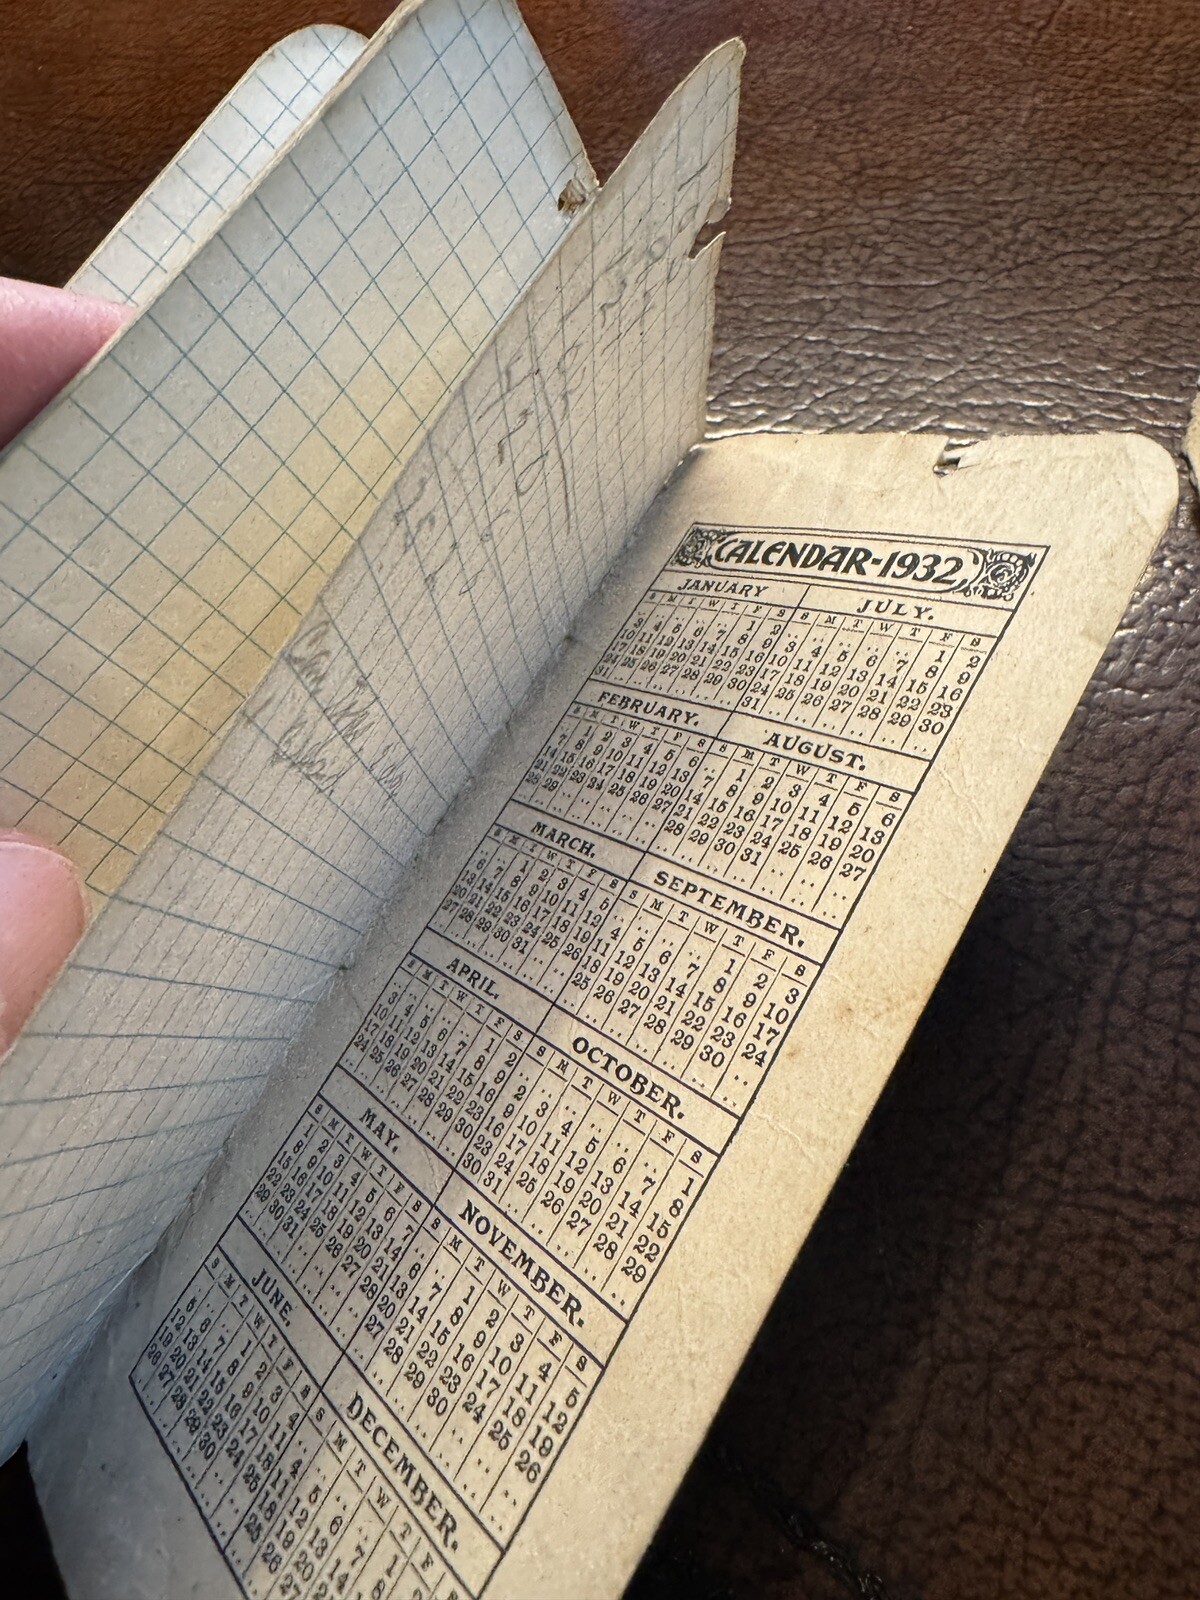 CALENDAR-1932
JANUARY
S M T W T F S
1 2
3 4 5 6 7 8 9
10 11 12 13 14 15 16
17 18 19 20 21 22 23
24 25 26 27 28 29 30
31
JULY.
S M T W T F S
1 2
3 4 5 6 7 8 9
10 11 12 13 14 15 16
17 18 19 20 21 22 23
24 25 26 27 28 29 30
31
FEBRUARY.
S M T W T F S
1 2 3 4 5 6
7 8 9 10 11 12 13
14 15 16 17 18 19 20
21 22 23 24 25 26 27
28 29
AUGUST.
S M T W T F S
1 2 3 4 5 6
7 8 9 10 11 12 13
14 15 16 17 18 19 20
21 22 23 24 25 26 27
28 29 30 31
MARCH.
S M T W T F S
1 2 3 4 5
6 7 8 9 10 11 12
13 14 15 16 17 18 19
20 21 22 23 24 25 26
27 28 29 30 31
SEPTEMBER.
S M T W T F S
1 2 3
4 5 6 7 8 9 10
11 12 13 14 15 16 17
18 19 20 21 22 23 24
25 26 27 28 29 30
APRIL.
S M T W T F S
1 2
3 4 5 6 7 8 9
10 11 12 13 14 15 16
17 18 19 20 21 22 23
24 25 26 27 28 29 30
OCTOBER.
S M T W T F S
1
2 3 4 5 6 7 8
9 10 11 12 13 14 15
16 17 18 19 20 21 22
23 24 25 26 27 28 29
30 31
MAY.
S M T W T F S
1 2 3 4 5 6 7
8 9 10 11 12 13 14
15 16 17 18 19 20 21
22 23 24 25 26 27 28
29 30 31
NOVEMBER.
S M T W T F S
1 2 3 4 5
6 7 8 9 10 11 12
13 14 15 16 17 18 19
20 21 22 23 24 25 26
27 28 29 30
JUNE.
S M T W T F S
1 2 3 4
5 6 7 8 9 10 11
12 13 14 15 16 17 18
19 20 21 22 23 24 25
26 27 28 29 30
DECEMBER.
S M T W T F
1
4 5 6 7 8
11 12 13 14
18 19 20
25 26 27